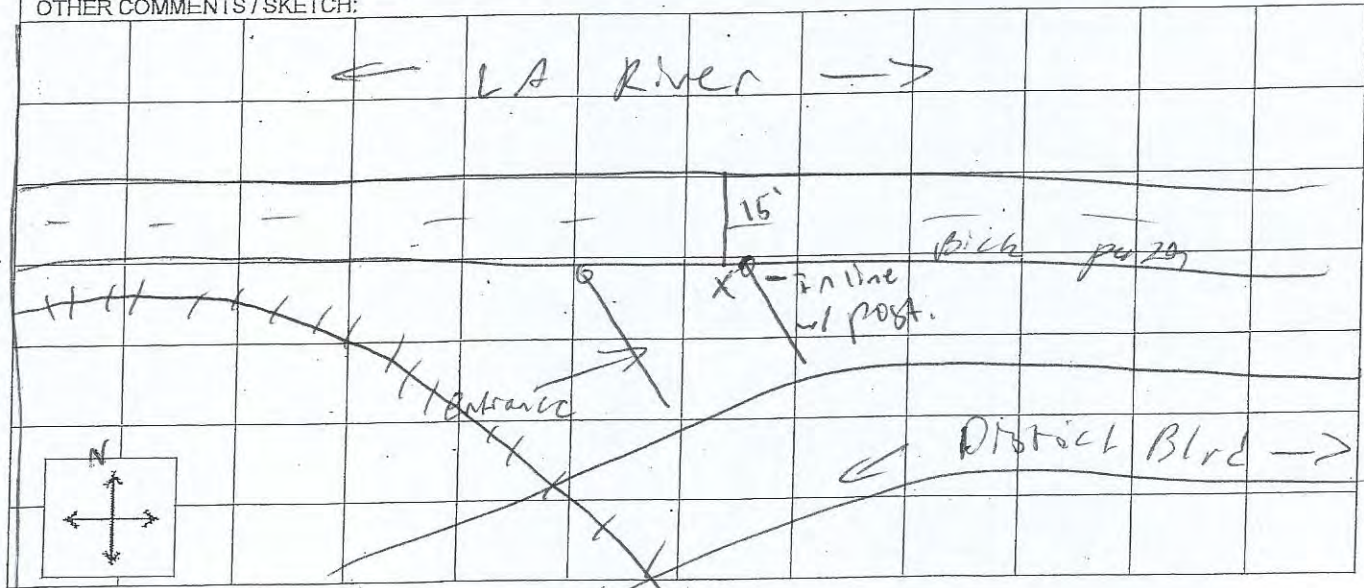 OTHER COMMENTS / SKETCH:
← LA River →
15'
X - In line
w/ post.
entrance
← District Blvd →
N